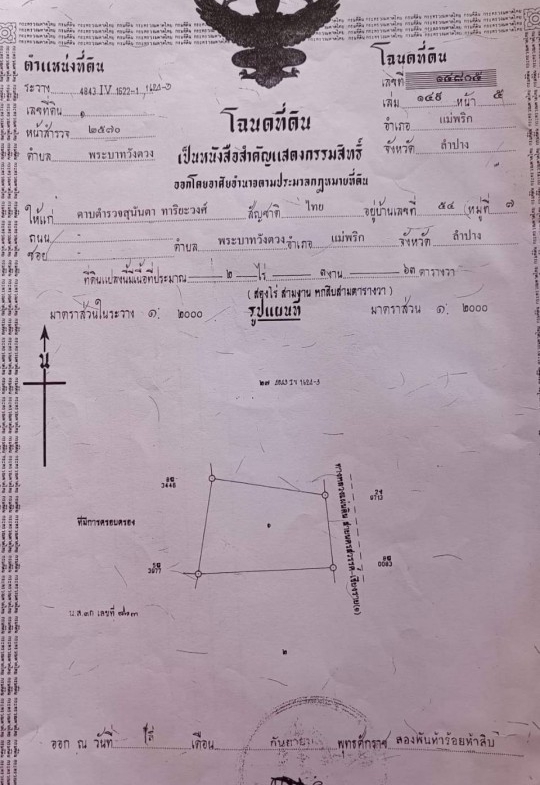 ตำแหน่งที่ดิน
โฉนดที่ดิน
ระวาง 4843 IV 1622-1
เลขที่ ๑๔๘๐๕
เลขที่ดิน ๑
เล่ม ๑๔๙ หน้า ๕
หน้าสำรวจ ๒๕๗๐
อำเภอ แม่พริก
ตำบล พระบาทวังตวง
จังหวัด ลำปาง
โฉนดที่ดิน
เป็นหนังสือสำคัญแสดงกรรมสิทธิ์
ออกโดยอาศัยอำนาจตามประมวลกฎหมายที่ดิน
ให้แก่ ดาบตำรวจสุนันตา ทาริยะวงศ์ สัญชาติ ไทย อยู่บ้านเลขที่ ๕๔ (หมู่ที่ ๗
ถนน - ซอย - ตำบล พระบาทวังตวง อำเภอ แม่พริก จังหวัด ลำปาง
ที่ดินแปลงนี้มีเนื้อที่ประมาณ ๒ ไร่ ๓ งาน ๖๓ ตารางวา
( สองไร่ สามงาน หกสิบสามตารางวา )
มาตราส่วนในระวาง ๑: ๒๐๐๐
รูปแผนที่
มาตราส่วน ๑: ๒๐๐๐
น
๒๗ 4843 IV
3446
6713
ที่มีการครอบครอง
๑
3977
0083
น.ส.๓ก เลขที่
๒
ออก ณ วันที่ เดือน กันยายน พุทธศักราช สองพันห้าร้อยห้าสิบ